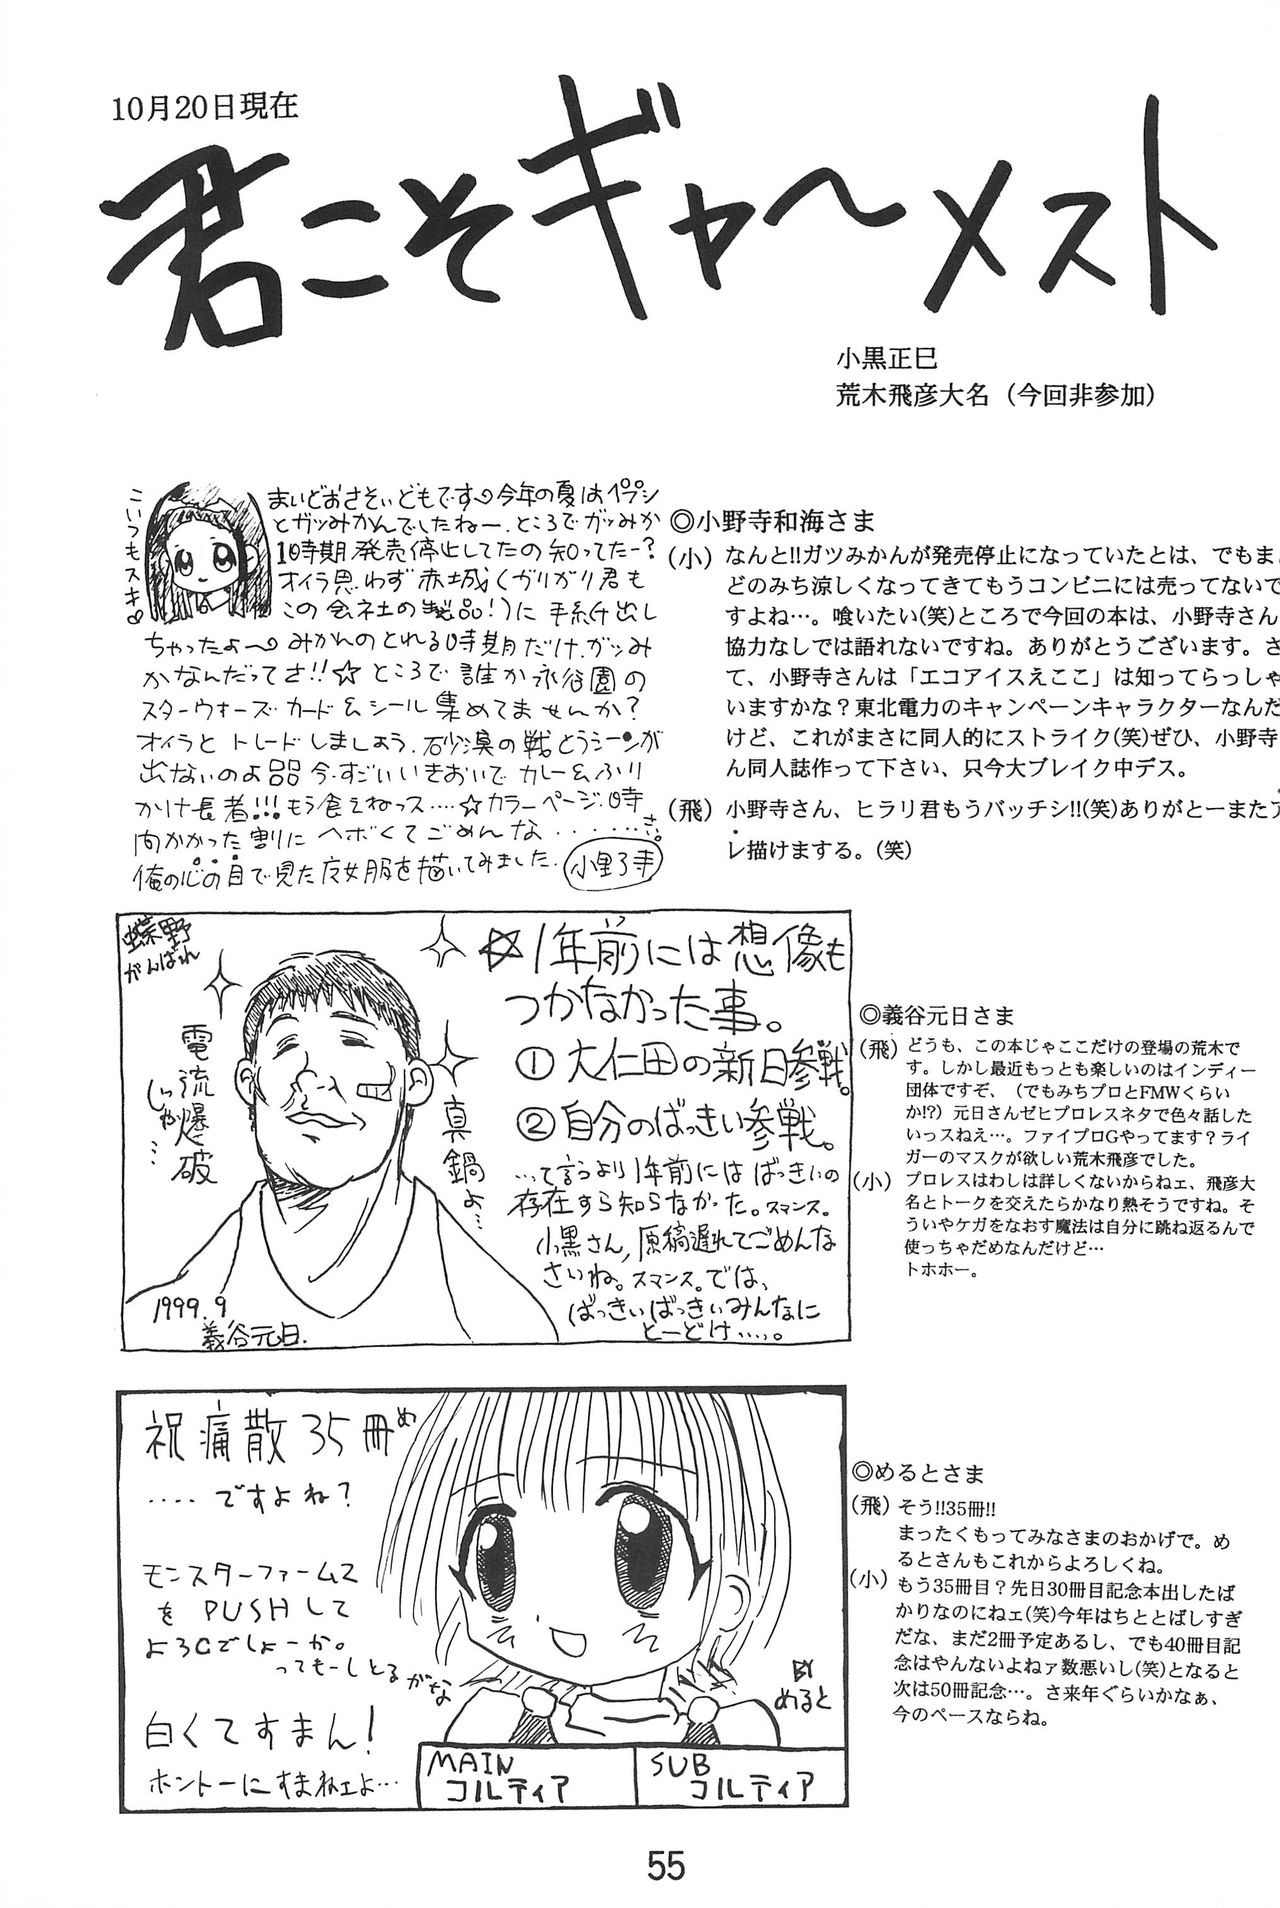 10月20日現在
君こそギャ～メスト
小黒正巳
荒木飛彦大名（今回非参加）
こいつもスキ♡
まいどおさそいどもです♡今年の夏はペプシ
とガツみかんでしたねー、ところでガツみか
1時期発売停止してたの知ってたー？
オイラ思わず赤城（ガリガリ君も
この会社の製品！）に手紙出し
ちゃったよ～みかんのとれる時期だけガツみ
かなんだってさ!!☆ところで誰か永谷園の
スターウォーズカード&シール集めてませんか？
オイラとトレードしましょう、砂漠の戦とうシーンが
出ないのよ 今、すごいいきおいでカレー&ふり
かけ長者!!!もう食えねっス‥‥☆カラーページ、時
間かかった割にヘボくてごめんな・・・・・・さ。
俺の心の目で見た女服を描いてみました。
◎小野寺和海さま
（小）なんと!!ガツみかんが発売停止になっていたとは、でもまあ
どのみち涼しくなってきてもうコンビニには売ってないで
すよね…。喰いたい(笑)ところで今回の本は、小野寺さん
協力なしでは語れないですね。ありがとうございます。さ
て、小野寺さんは「エコアイスえここ」は知ってらっしゃ
いますかな？東北電力のキャンペーンキャラクターなんだ
けど、これがまさに同人的にストライク(笑)ぜひ、小野寺
ん同人誌作って下さい、只今大ブレイク中デス。
（飛）小野寺さん、ヒラリ君もうバッチシ!!(笑)ありがとーまたア
レ描けまする。(笑)
蝶野
がんばれ
電流爆破
しっかか…
真鍋よ…
1999.9
義谷元日.
☆1年前には想像も
つかなかった事。
①大仁田の新日参戦。
②自分のばっきい参戦。
…って言うより1年前にはばっきいの
存在すら知らなかった。スマンス。
小黒さん,原稿遅れてごめんな
さいね。スマンス。では、
ばっきぃばっきぃみんなに
とーどけ‥‥。
◎義谷元日さま
（飛）どうも、この本じゃここだけの登場の荒木で
す。しかし最近もっとも楽しいのはインディー
団体ですぞ、（でもみちプロとFMWくらい
か!?）元日さんゼヒプロレスネタで色々話した
いっスねえ…。ファイプロGやってます？ライ
ガーのマスクが欲しい荒木飛彦でした。
（小）プロレスはわしは詳しくないからねェ、飛彦大
名とトークを交えたらかなり熱そうですね。そ
ういやケガをなおす魔法は自分に跳ね返るんで
使っちゃだめなんだけど…
トホホー。
祝痛散35冊め
‥‥ですよね？
モンスターファーム2
をPUSHして
よろCでしょーか。
ってもーしとるがな
白くてすまん！
ホントーにすまねェよ…
BY
めると
MAIN
コルティア
SUB
コルティア
◎めるとさま
（飛）そう!!35冊!!
まったくもってみなさまのおかげで。め
るとさんもこれからよろしくね。
（小）もう35冊目？先日30冊目記念本出したば
かりなのにねェ(笑)今年はちととばしすぎ
だな、まだ2冊予定あるし、でも40冊目記
念はやんないよねァ数悪いし(笑)となると
次は50冊記念…。さ来年ぐらいかなぁ、
今のペースならね。
55